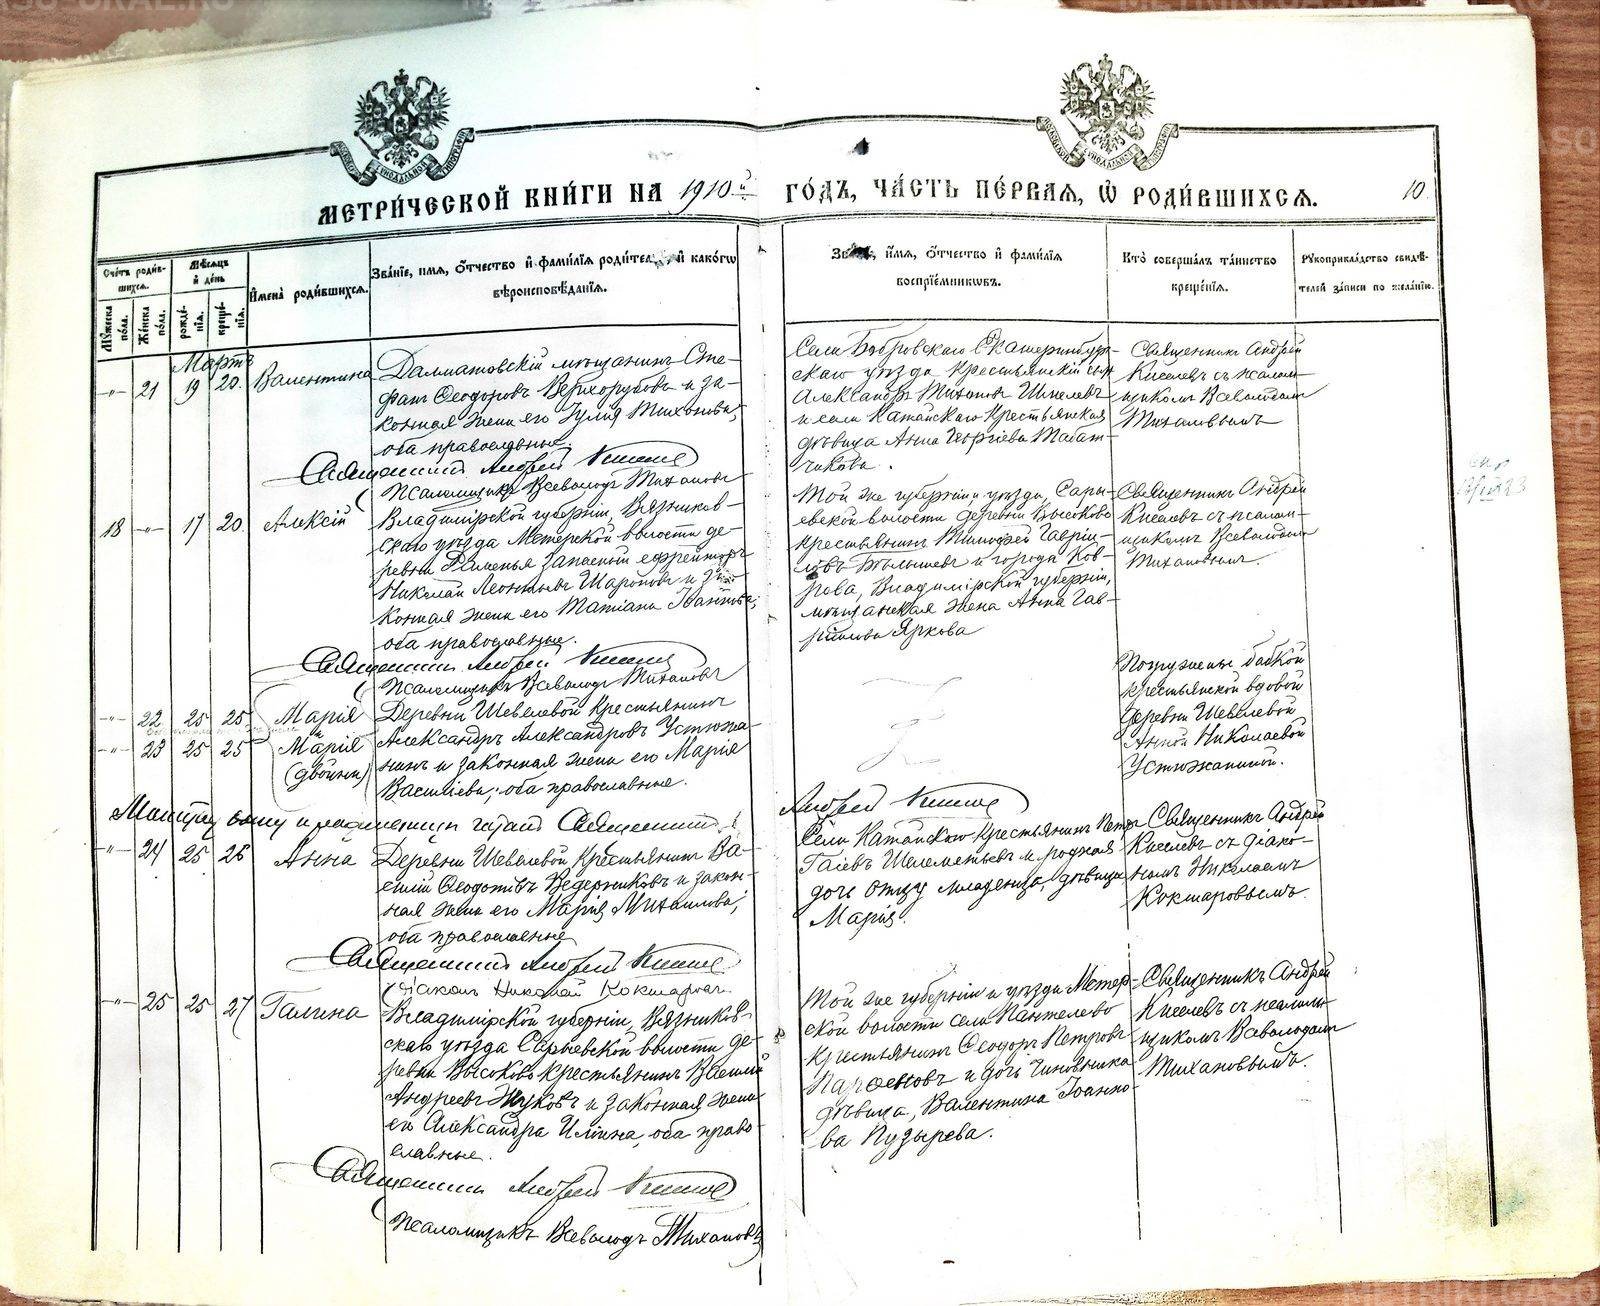 МЕТРИ́ЧЕСКОЙ КНИ́ГИ НА 1910й ГО́ДЪ, ЧА́СТЬ ПЕ́РВАЯ, Ѡ РОДИ́ВШИХСЯ.
10
Сче́тъ роди́в-
шихся.
Мѣ́сяцъ
и́ день
И́мена̀ роди́вшихся.
Зва́нїе, имя, о́тчество и́ фами́лїя роди́тел й како́гѡ
вѣроисповѣ́данїя.
и́мя, о́тчество и́ фами́лїя
воспрїе́мниковъ.
Кто̀ соверша́лъ та́инство
креще́нїя.
Рꙋкоприкла́дство свидѣ́-
телей за́писи по жела́нїю.
Мꙋ́жеска
по́ла.
Же́нска
по́ла.
рожде́-
нїя.
креще́-
нїя.
Мартъ
-"- 21 19 20. Валентина
Далматовскій мѣщанинъ Сте-
фанъ Ѳеодоровъ Верхорубовъ и за-
конная жена его Іулія Тихонова;
оба православные.
Священникъ Андрей Киселевъ
Псаломщикъ Всеволодъ Тихановъ
Села Бобровскаго Екатеринбург-
скаго уѣзда крестьянскій сынъ
Александръ Тихоновъ Шмелевъ
и села Катайскаго крестьянская
дѣвица Анна Георгіева Табат-
чикова.
Священникъ Андрей
Киселевъ съ псалом-
щикомъ Всеволодом
Тихановымъ
18 -"- 17 20. Алексій
Владимірской губерніи, Вязников-
скаго уѣзда Метерской волости де-
ревни Фаменья запасный ефрейторъ
Николай Леонтьевъ Шароновъ и за-
конная жена его Татіана Іоаннова;
оба православные.
Священникъ Андрей Киселевъ
Псаломщикъ Всеволодъ Тихановъ
Той же губерніи и уѣзда, Сары-
евской волости деревни Высоково
крестьянинъ Тимофей Гаврі-
ловъ и города Ков-
рова, Владимірской губерніи,
мѣщанская жена Анна Гав-
ріилова Яркова
Священникъ Андрей
Киселевъ съ псалом-
щикомъ Всеволодом
Тихановымъ.
-"- 22 25 25 Марія
и
-"- 23 25 25 Марія
(двойни)
Деревни Шевелевой крестьянинъ
Александръ Александровъ Устюжа-
нинъ и законная жена его Марія
Василіева; оба православные.
Погружены бабкой
крестьянской вдовой
деревни Шевелевой
Анной Николаевой
Устюжаниной.
Молитву бабкѣ и родильницѣ читалъ Священникъ
Андрей Киселевъ
-"- 24 25 26 Анна
Деревни Шевелевой крестьянинъ Ва-
силій Ѳеодотовъ Ведерниковъ и закон-
ная жена его Марія Михаилова;
оба православные
Священникъ Андрей Киселевъ
Діаконъ Николай Кокшаровъ.
Села Катайскаго крестьянинъ Петръ
Гаіевъ Шелеметьевъ и родная
дочь отцу младенца, дѣвица
Марія.
Священникъ Андрей
Киселевъ съ діако-
номъ Николаемъ
Кокшаровымъ.
-"- 25 25 27 Галина
Владимірской губерніи, Вязников-
скаго уѣзда Сарыевской волости де-
ревни Высоково крестьянинъ Василій
Андреевъ Жуковъ и законная жена
его Александра Иліина, оба право-
славные.
Священникъ Андрей Киселевъ
Псаломщикъ Всеволодъ Тихановъ
Той же губерніи и уѣзда Метер-
ской волости села Пантелево
крестьянинъ Ѳеодоръ Петровъ
Парѳеновъ и дочь чиновника
дѣвица, Валентина Іоанно-
ва Пузырева.
Священникъ Андрей
Киселевъ съ псалом-
щикомъ Всеволодомъ
Тихановымъ.